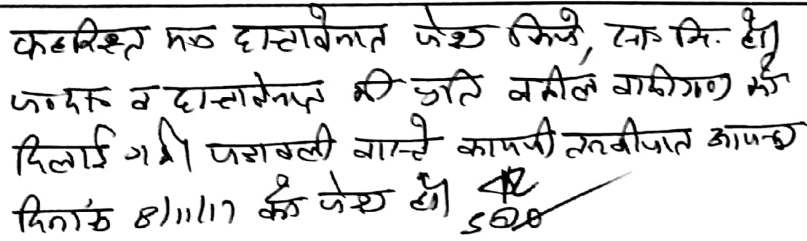 फहरिस्त मय दास्तावेजात पेश किये, सा. मि. हो।
व दास्तावेजात की प्रति वकील वादीगण को
दिलाई गयी। पत्रावली वास्ते कायमी तनकीयात
दिनांक 8/11/17 को पेश हो।